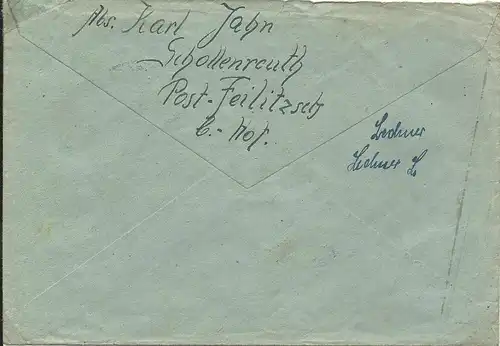 Abs. Karl Jahn
Schollenreuth
Post-Feilitzsch
b. Hof.
Lechner
Lechner L